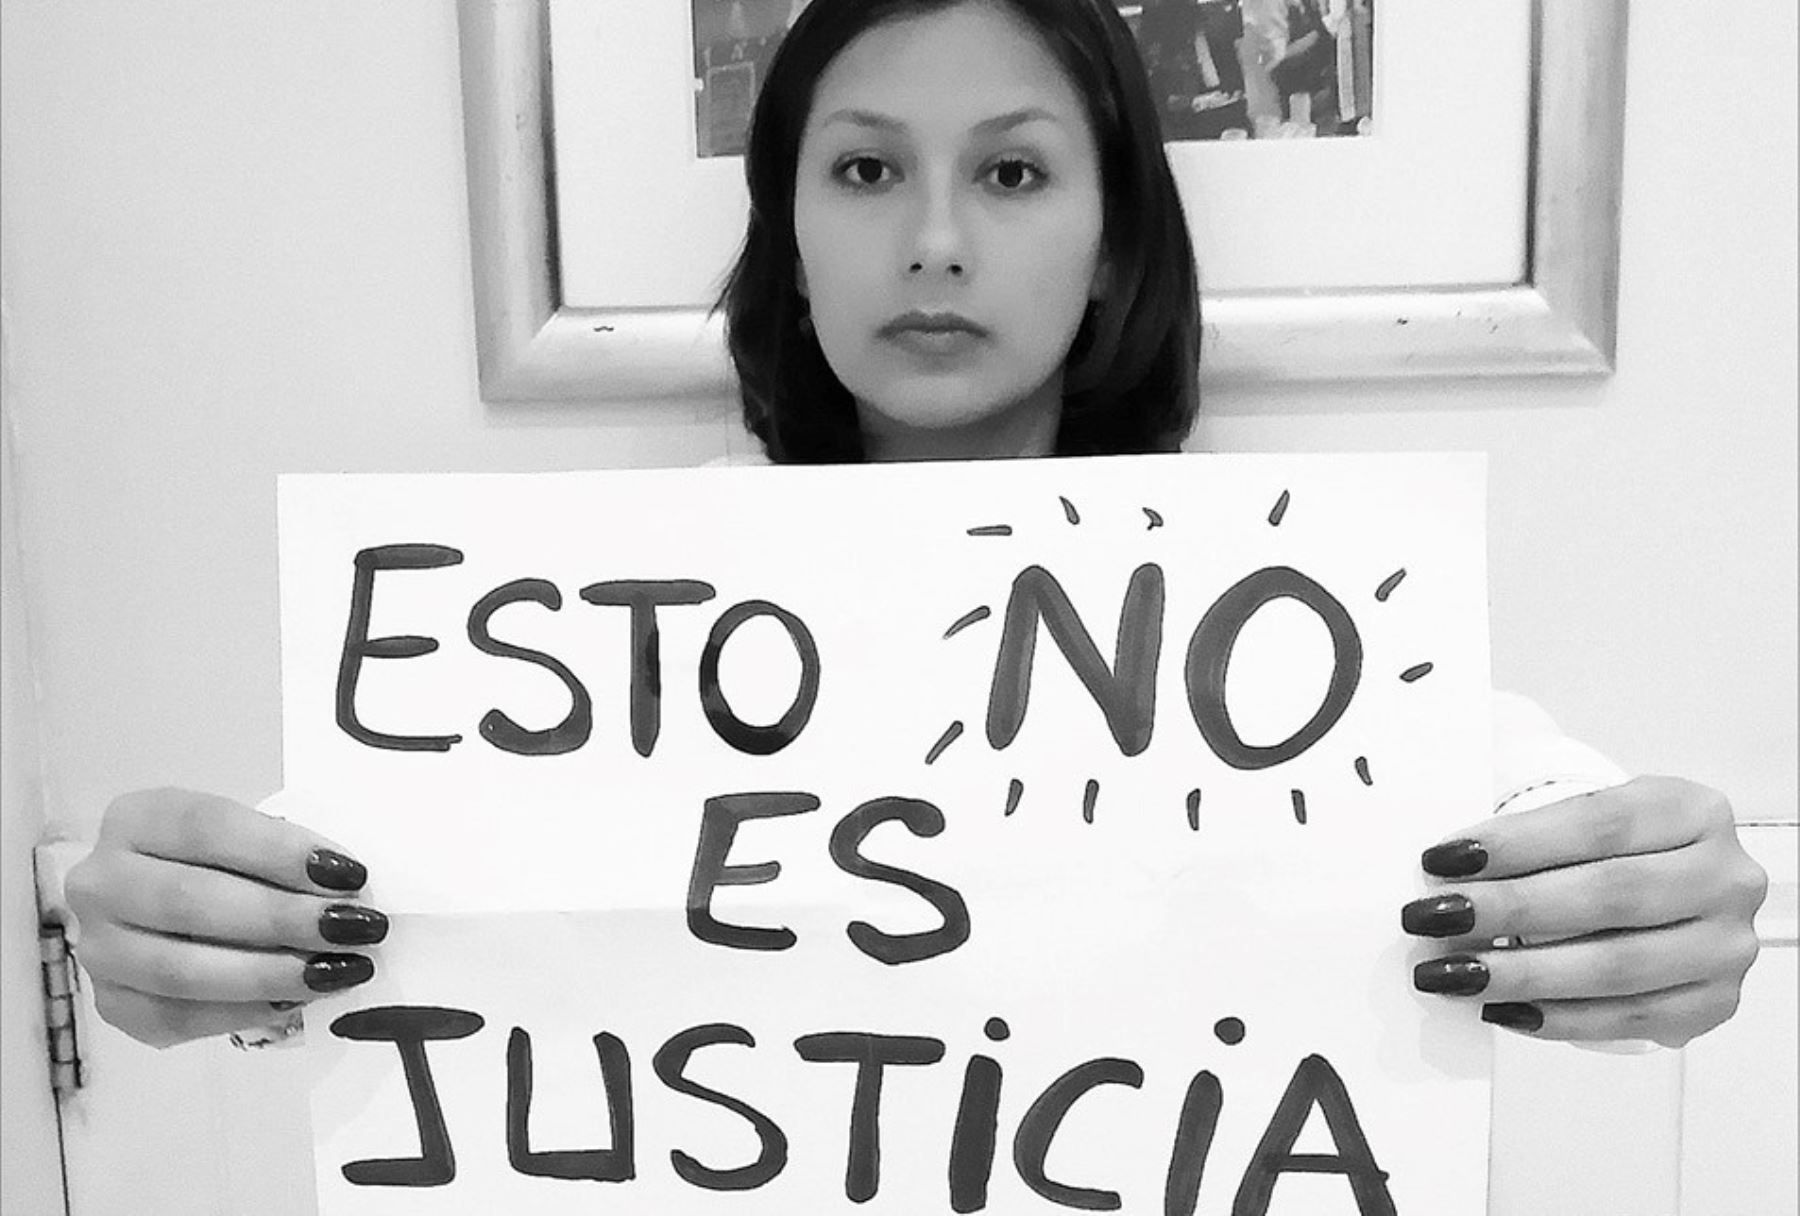 ESTO NO
ES
JUSTiCiA